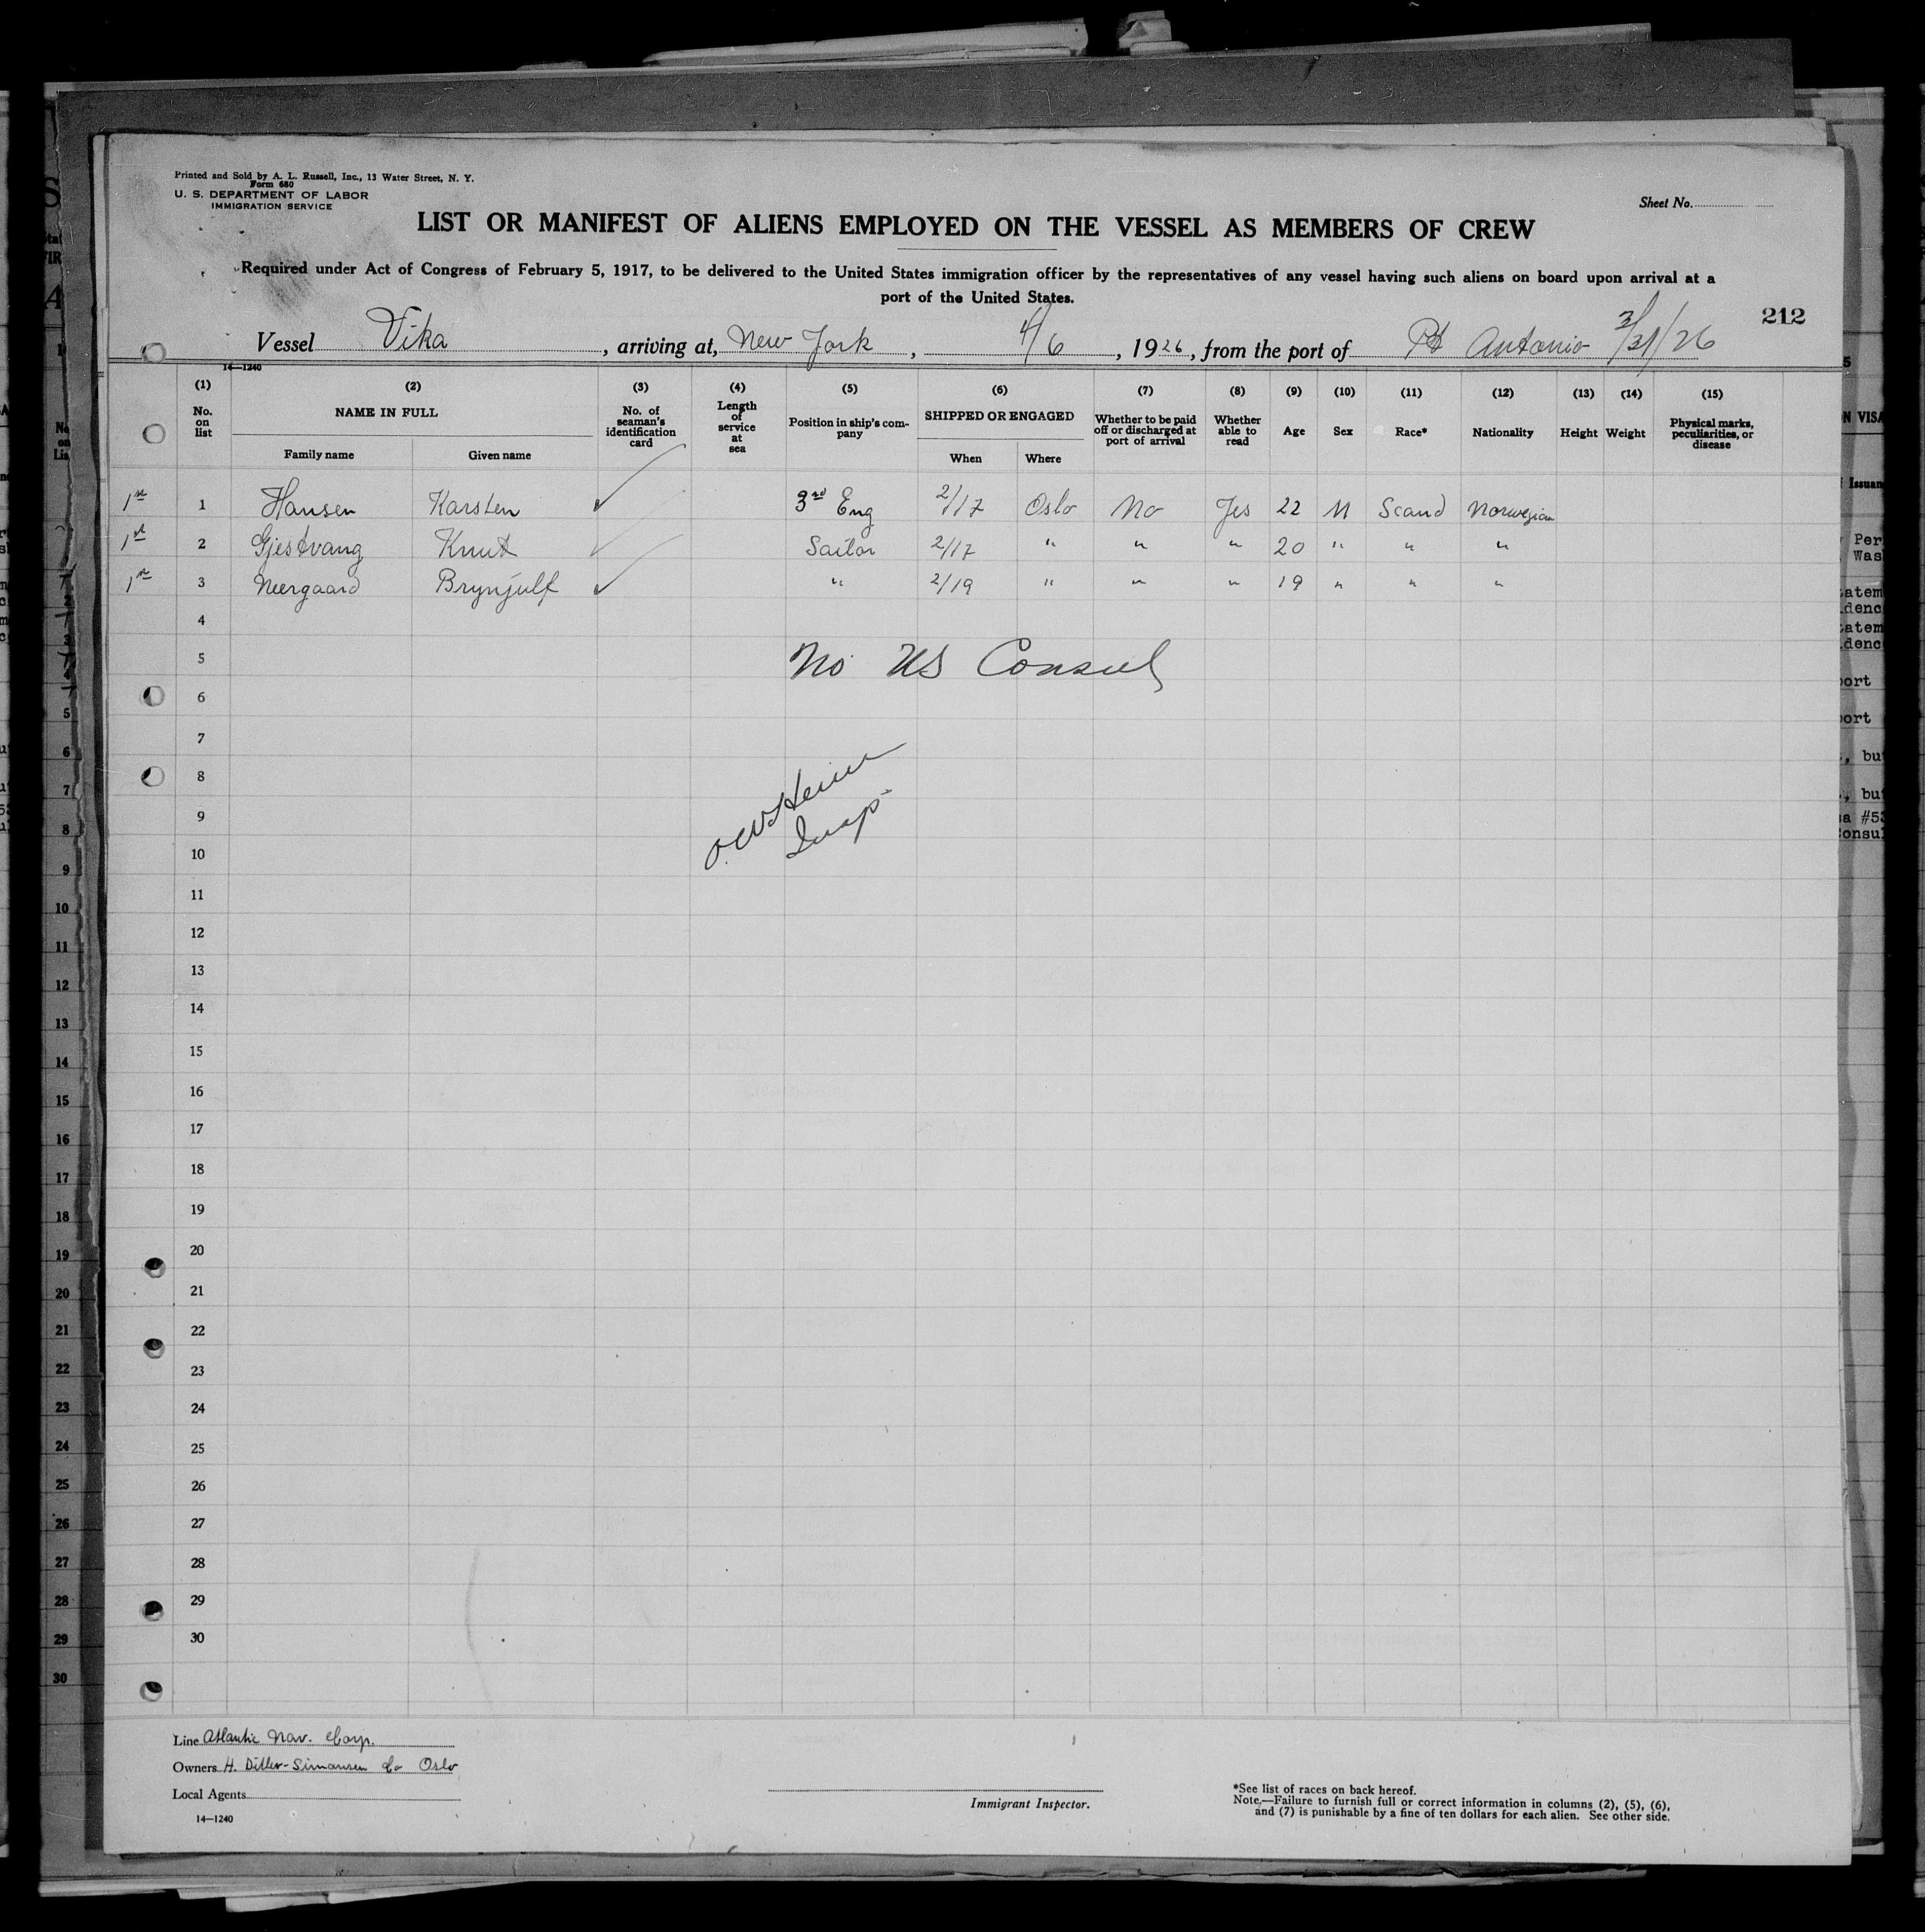 Printed and Sold by A. L. Russell, Inc., 13 Water Street, N. Y.
Form 680
U. S. DEPARTMENT OF LABOR
IMMIGRATION SERVICE
Sheet No.
LIST OR MANIFEST OF ALIENS EMPLOYED ON THE VESSEL AS MEMBERS OF CREW
Required under Act of Congress of February 5, 1917, to be delivered to the United States immigration officer by the representatives of any vessel having such aliens on board upon arrival at a
port of the United States.
212
Vessel Vika, arriving at, New York, 4/6, 1926, from the port of Pt Antonio 3/31/26
14—1240
(1) (2) (3) (4) (5) (6) (7) (8) (9) (10) (11) (12) (13) (14) (15)
No. on list
NAME IN FULL
Family name Given name
No. of seaman's identification card
Length of service at sea
Position in ship's company
SHIPPED OR ENGAGED
When Where
Whether to be paid off or discharged at port of arrival
Whether able to read
Age Sex Race* Nationality Height Weight
Physical marks, peculiarities, or disease
1st 1 Hansen Karsten 3rd Eng 2/17 Oslo No Yes 22 M Scand Norwegian
1st 2 Gjestvang Knut Sailor 2/17 " " " 20 " " "
1st 3 Neergaard Brynjulf " 2/19 " " " 19 " " "
4
5 No US Consul
6
7
8
9 Insp
10
11
12
13
14
15
16
17
18
19
20
21
22
23
24
25
26
27
28
29
30
Line Atlantic Nav. Corp.
Owners H. Ditlev-Simonsen Co Oslo
Local Agents
14—1240
Immigrant Inspector.
*See list of races on back hereof.
Note.—Failure to furnish full or correct information in columns (2), (5), (6),
and (7) is punishable by a fine of ten dollars for each alien. See other side.